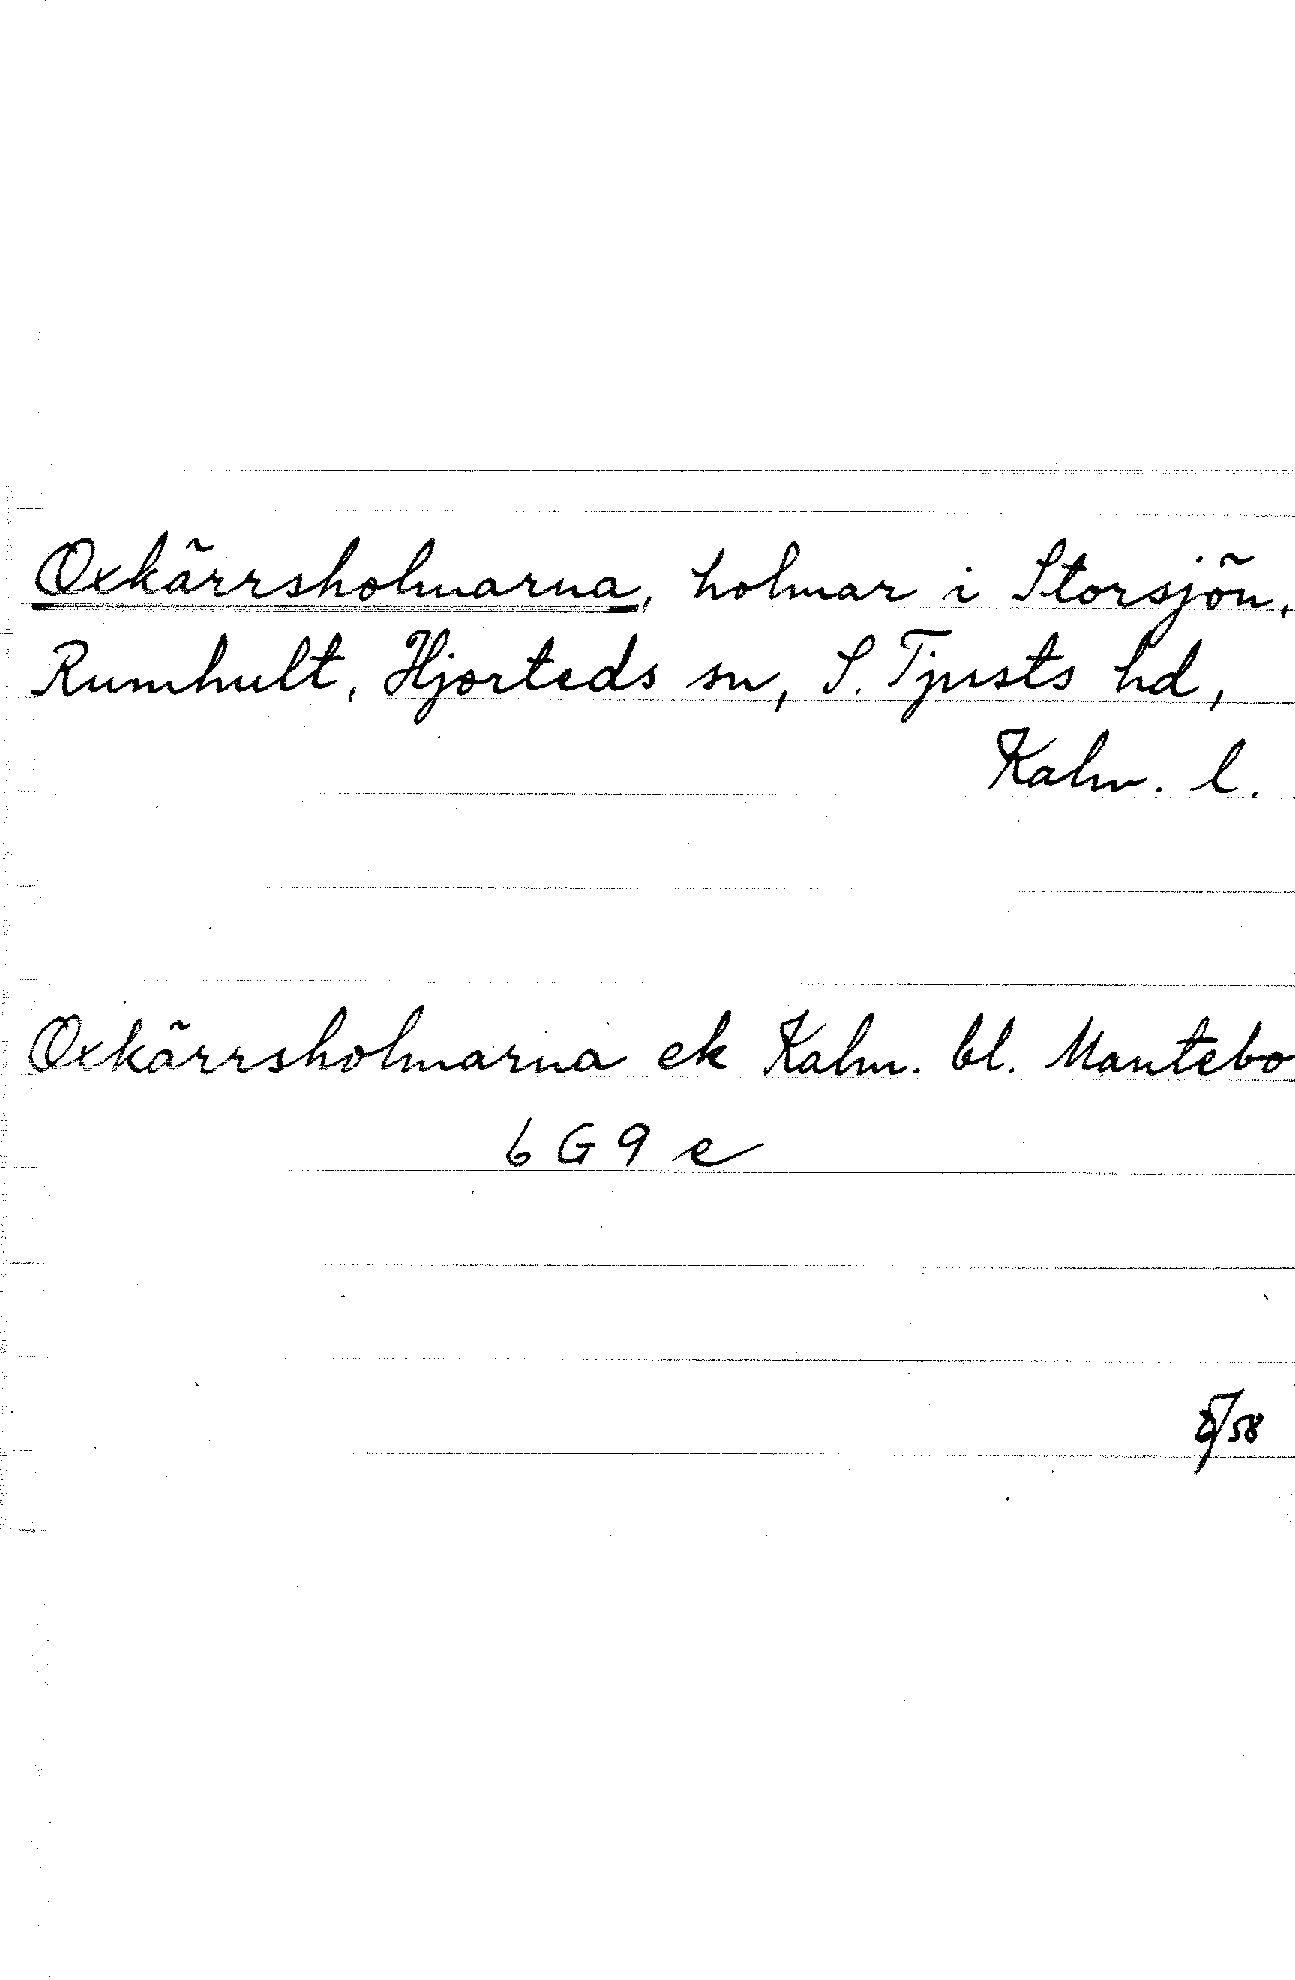 Oxkärrsholmarna, holmar i Storsjön,
Rumhult, Hjorteds sn, S. Tjusts hd,
Kalm. l.
Oxkärrsholmarna ek Kalm. bl. Mantebo
6 G 9 e
/58